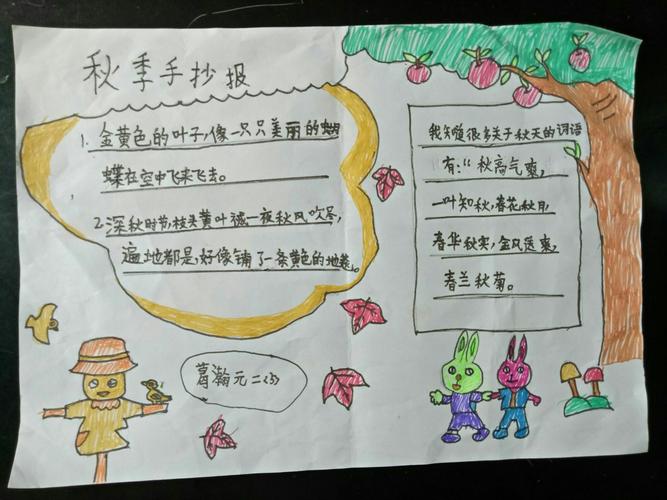 秋季手抄报
1. 金黄色的叶子,像一只只美丽的蝴
蝶在空中飞来飞去。
2. 深秋时节,枝头黄叶被一夜秋风吹尽,
遍地都是,好像铺了一条黄色的地毯。
我知道很多关于秋天的词语
有:“秋高气爽,
一叶知秋,春花秋月,
春华秋实,金风送爽,
春兰秋菊。
葛瀚元 二(3)